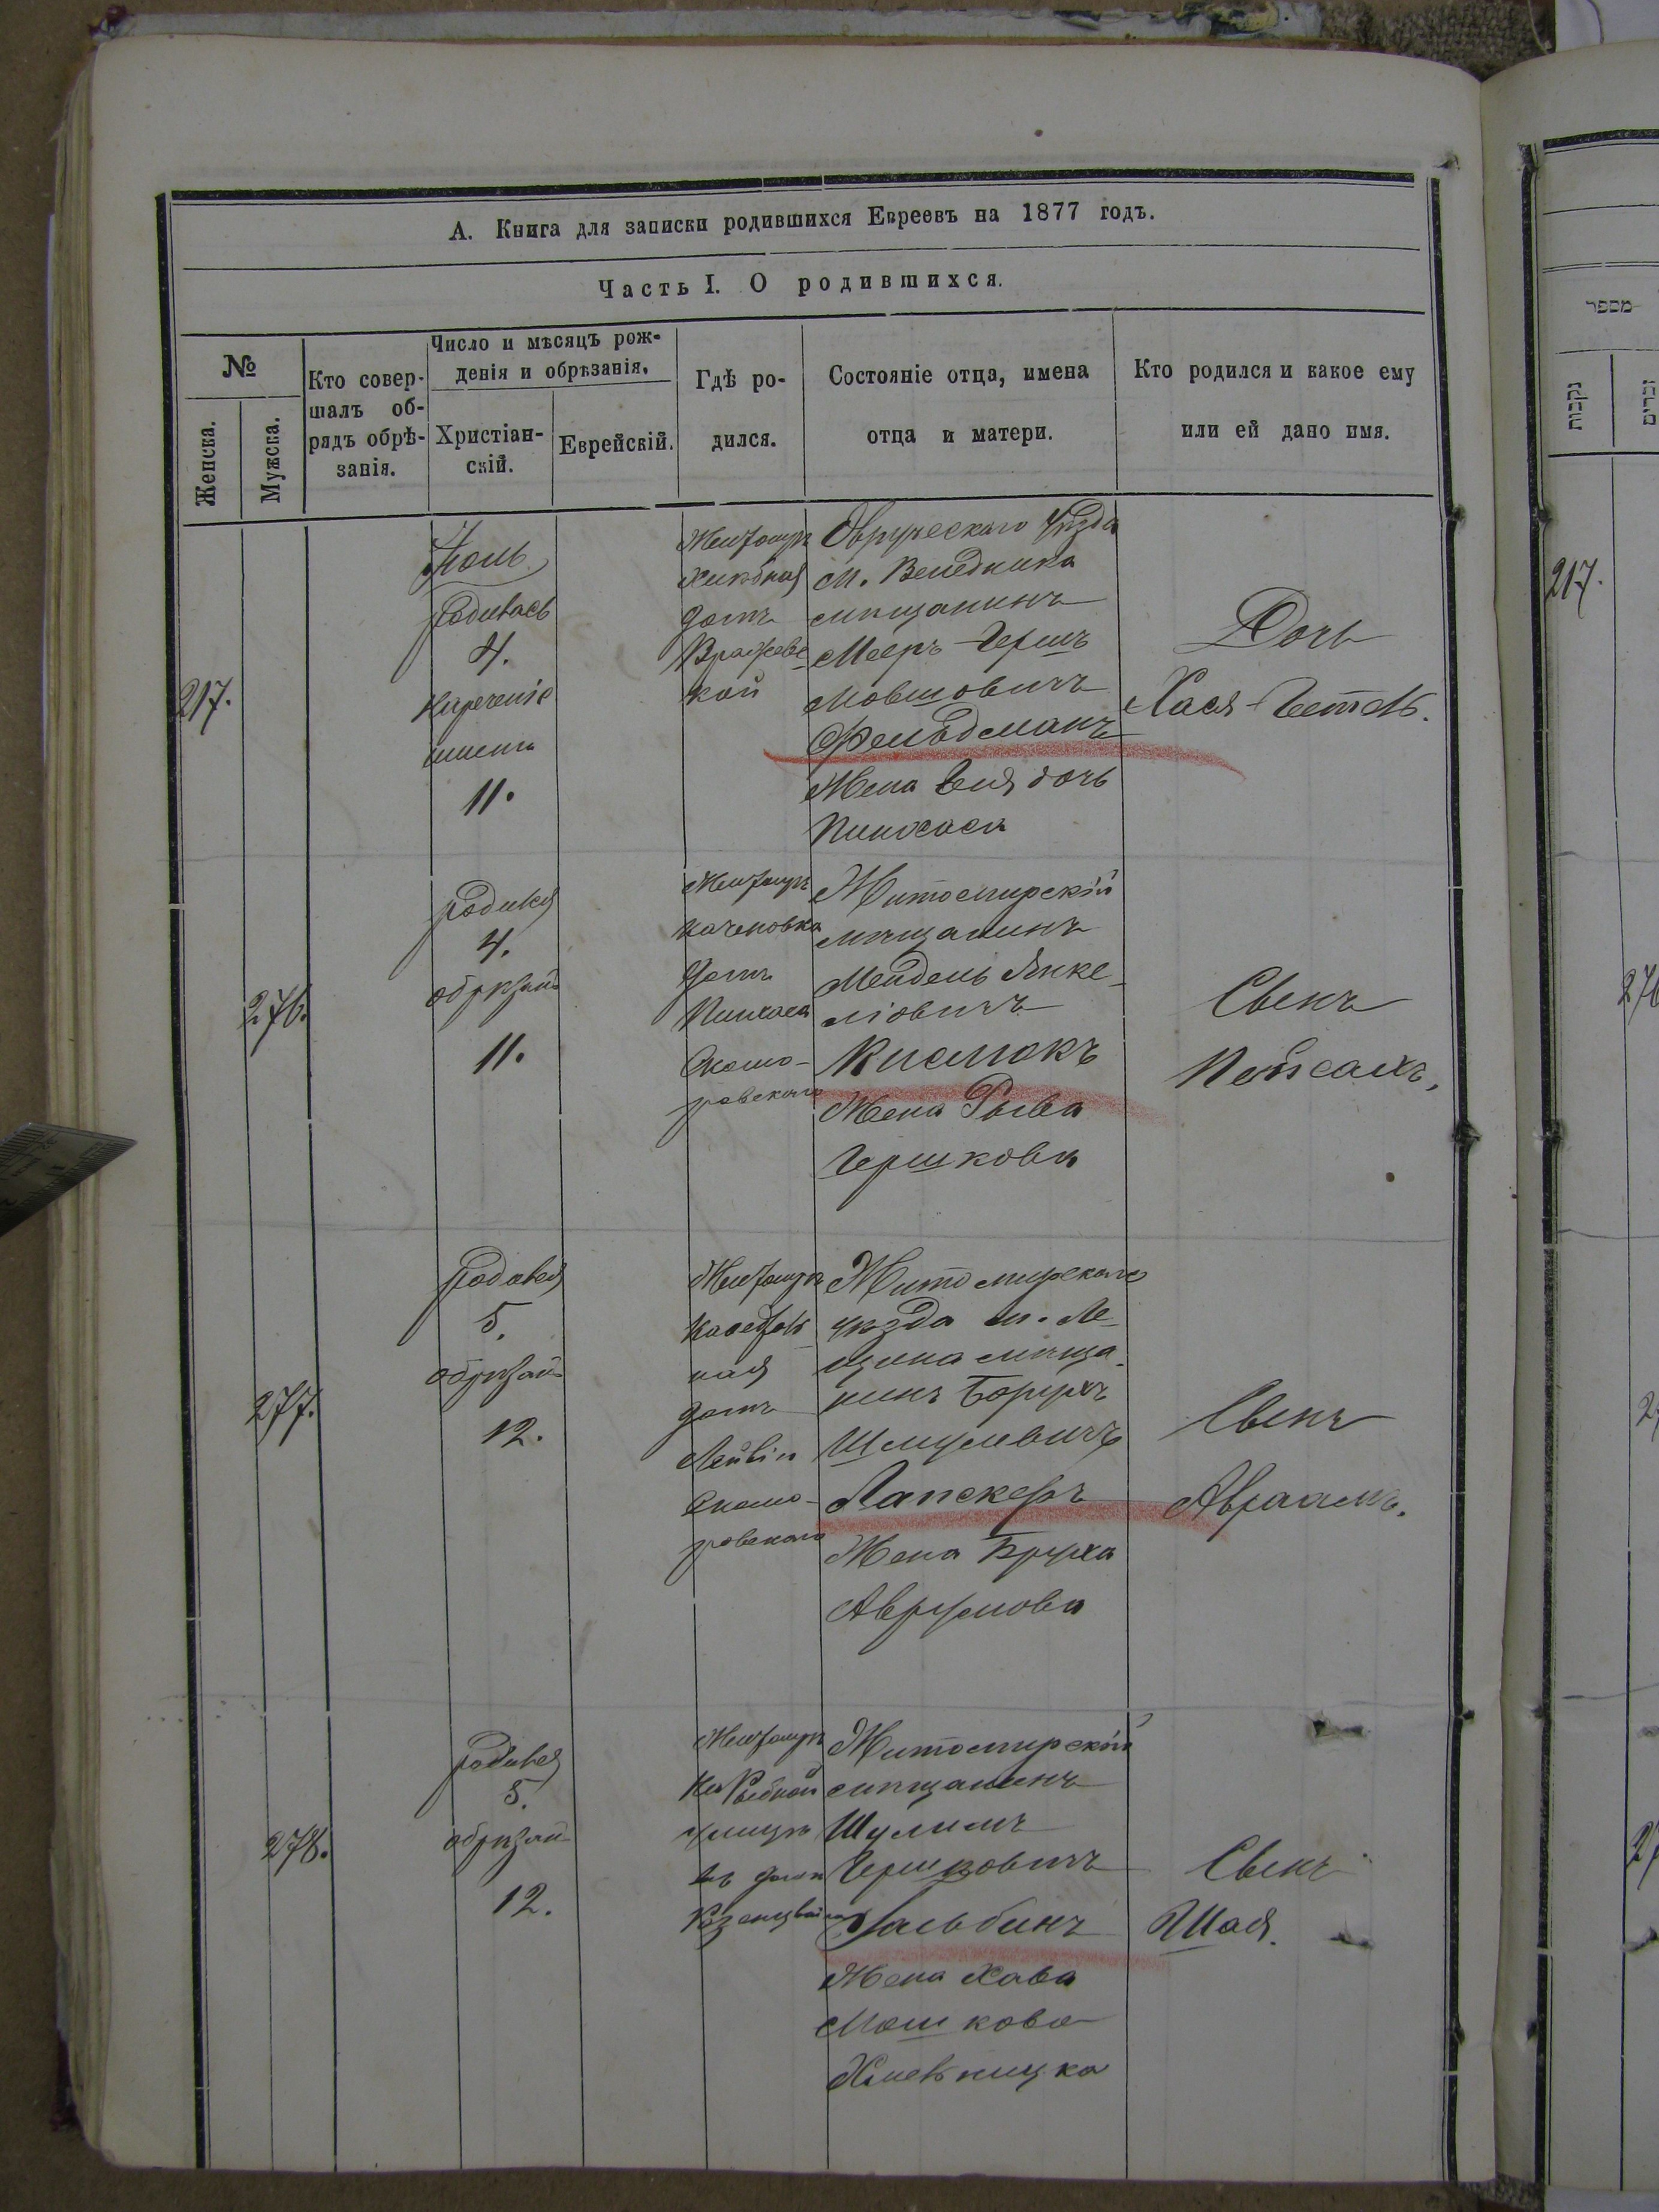 А. Книга для записки родившихся Евреевъ на 1877 годъ.
Часть I. О родившихся.
№
Женска.
Мужска.
Кто совер-
шалъ об-
рядъ обрѣ-
занія.
Число и мѣсяцъ рож-
денія и обрѣзанія.
Христіан-
скій.
Еврейскій.
Гдѣ ро-
дился.
Состояніе отца, имена
отца и матери.
Кто родился и какое ему
или ей дано имя.
217.
родилась
4.
Нареченіе
имени
11.
домъ
кой
Овручскаго уѣзда
м. Веледника
мѣщанинъ
Мееръ-Гершъ
Мовшовичъ
Фельдманъ
Жена Геня дочь
Пинхаса
Дочь
Хася-Гетль.
276.
родился
4.
обрѣзан
11.
домъ
Пинхаса
Скомо-
ровскаго
Житомирскій
мѣщанинъ
Мендель Янке-
ліовичъ
Кислюкъ
Жена Рыва
Гершкова
Сынъ
Пейсахъ,
277.
родился
5.
обрѣзан
12.
ная
домъ
Лейбы
Скомо-
ровскаго
Житомирскаго
уѣзда м. Ле-
щина мѣща-
нинъ Борухъ
Шмулевичъ
Лапскеръ
Жена Бруха
Аврумова
Сынъ
Авраамъ.
278.
родился
5.
обрѣзан
12.
на Рыбной
улицѣ
въ домѣ
Житомирскій
мѣщанинъ
Шулимъ
Гершковичъ
Гальбинъ
Жена Хава
Мошкова
Сынъ
Шая.
מספר
נקבות
זכרים
217.